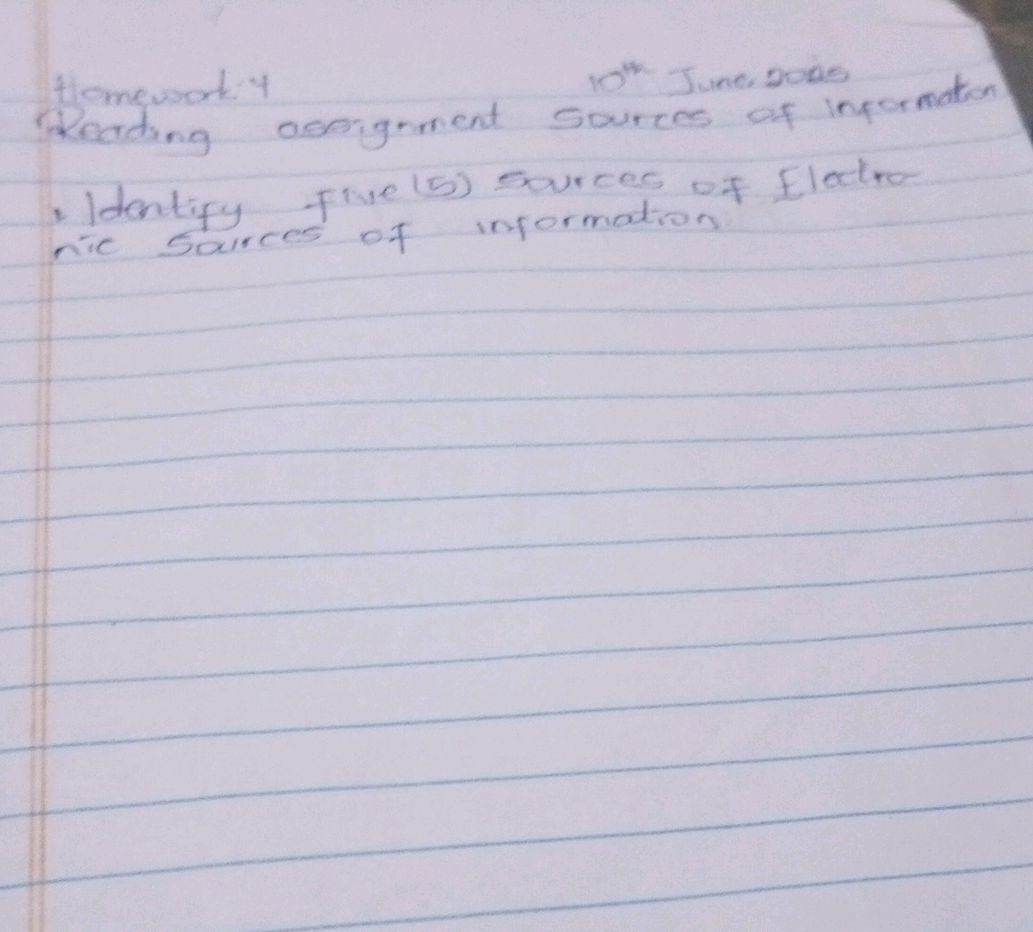 Homework: 4
10th June, 2025
Reading assignment Sources of information
1. Identify five (5) sources of Electro-
nic Sources of information.